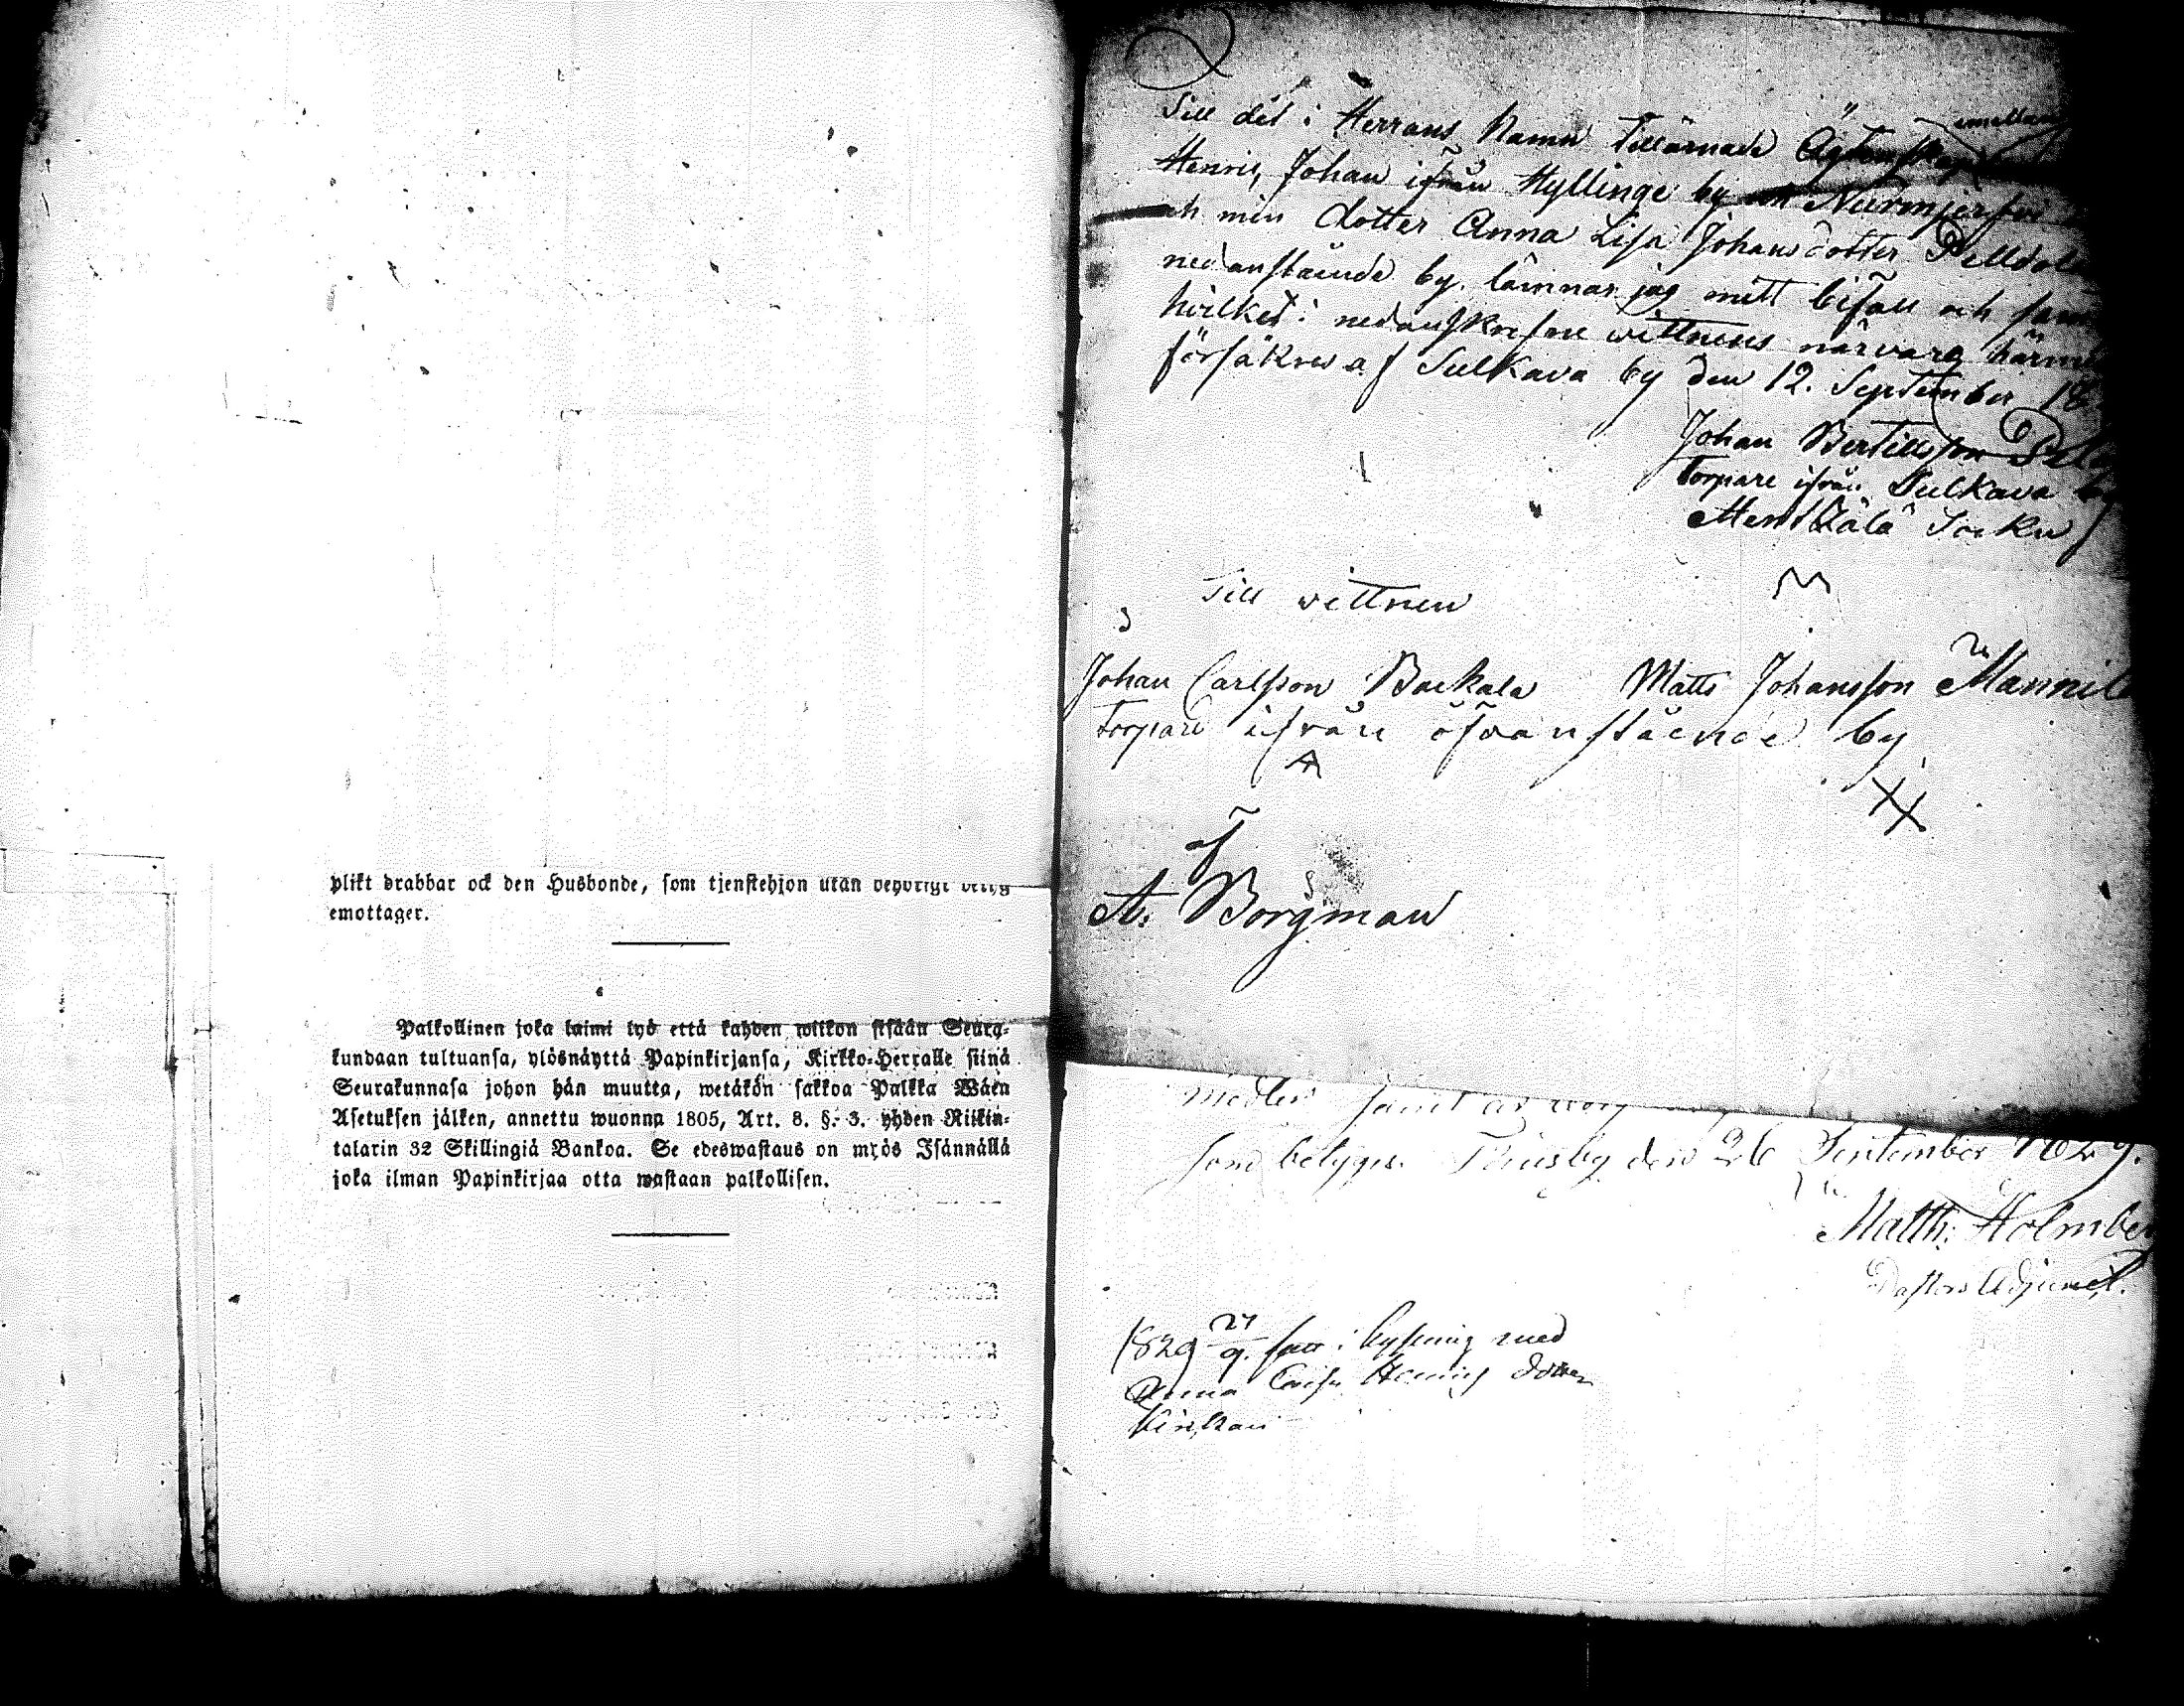 plikt drabbar ock den Husbonde, som tjenstehjon utan behörigt betyg
emottager.
Palkollinen joka laimi lyö että kahden wiikon sisään Seura-
kundaan tultuansa, ylösnäyttä Papinkirjansa, Kirkko-Herralle siinä
Seurakunnasa johon hän muutta, wetäkön sakkoa Palkka Wäen
Asetuksen jälken, annettu wuonna 1805, Art. 8. §. 3. yhden Riikin-
talarin 32 Skillingiä Bankoa. Se edeswastaus on myös Isännällä
joka ilman Papinkirjaa otta wastaan palkollisen.
Till det i Herrans Namn Tillärnade Ägtenskap emellan
Henric Johan ifrån Hyllinge by Nurmjerfvi
och min dotter Anna Lisa Johansdotter
nedanstående by. lämnar jag mitt bifall och
hvilket i nedanskrefne wittnens närvaro härmed
försäkras af Sulkava by den 12. September 18
Johan Bertillsson
Torpare ifrån Sulkava by
Mentzälä Sockn
Till vittnen
Johan Carlsson Backala Matts Johansson Mannil
torpare ifrån öfvanstående by
af
A. Borgman
medlen samt är
som betyges. Thusby den 26 September 1829.
Matth. Holmber
Pastors Adjunct.
1829 27/9. til lysning med
Anna Henrics dotter